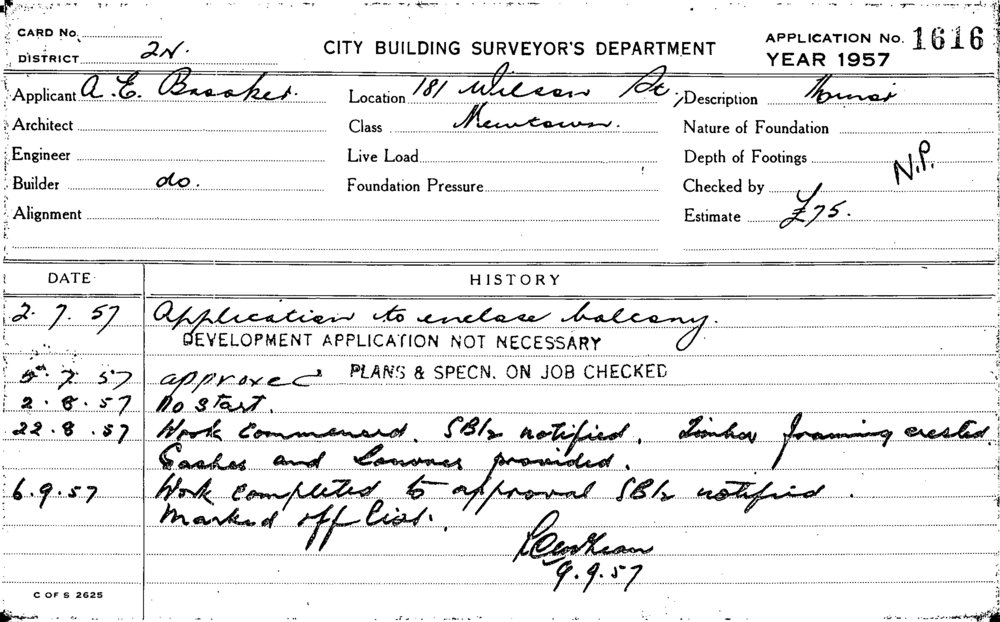 CARD No.
DISTRICT 2N.
CITY BUILDING SURVEYOR'S DEPARTMENT
APPLICATION No. 1616
YEAR 1957
Applicant A. E. Brooker. Location 181 Wilson St., Description Minor
Architect Class Newtown. Nature of Foundation
Engineer Live Load Depth of Footings
N.P.
Builder do. Foundation Pressure Checked by
Alignment Estimate £75.
DATE HISTORY
2. 7. 57 Application to enclose balcony.
DEVELOPMENT APPLICATION NOT NECESSARY
5. 7. 57 approved PLANS & SPECN. ON JOB CHECKED
2. 8. 57 No start.
22. 8. 57 Work commenced. notified. Timber framing erected.
Sashes and Louvres provided.
6. 9. 57 Work completed to approval notified.
Marked off list.
9. 9. 57
C OF S 2625